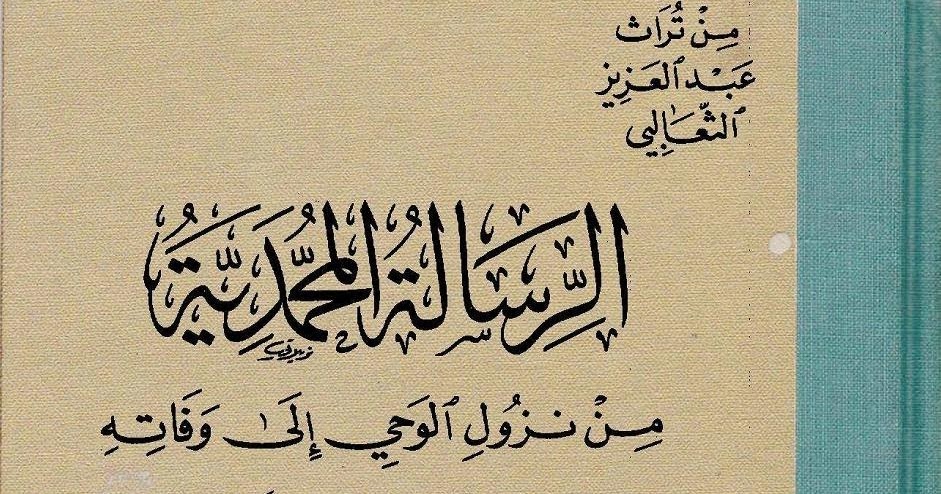 مِنْ تُرَاث
عَبْد ٱلعَزِيز
ٱلثَّعَالِبِي
الرِّسَالَةُ المُحَمَّدِيَّةُ
مِنْ نُزُولِ ٱلوَحْيِ إِلَىٰ وَفَاتِهِ